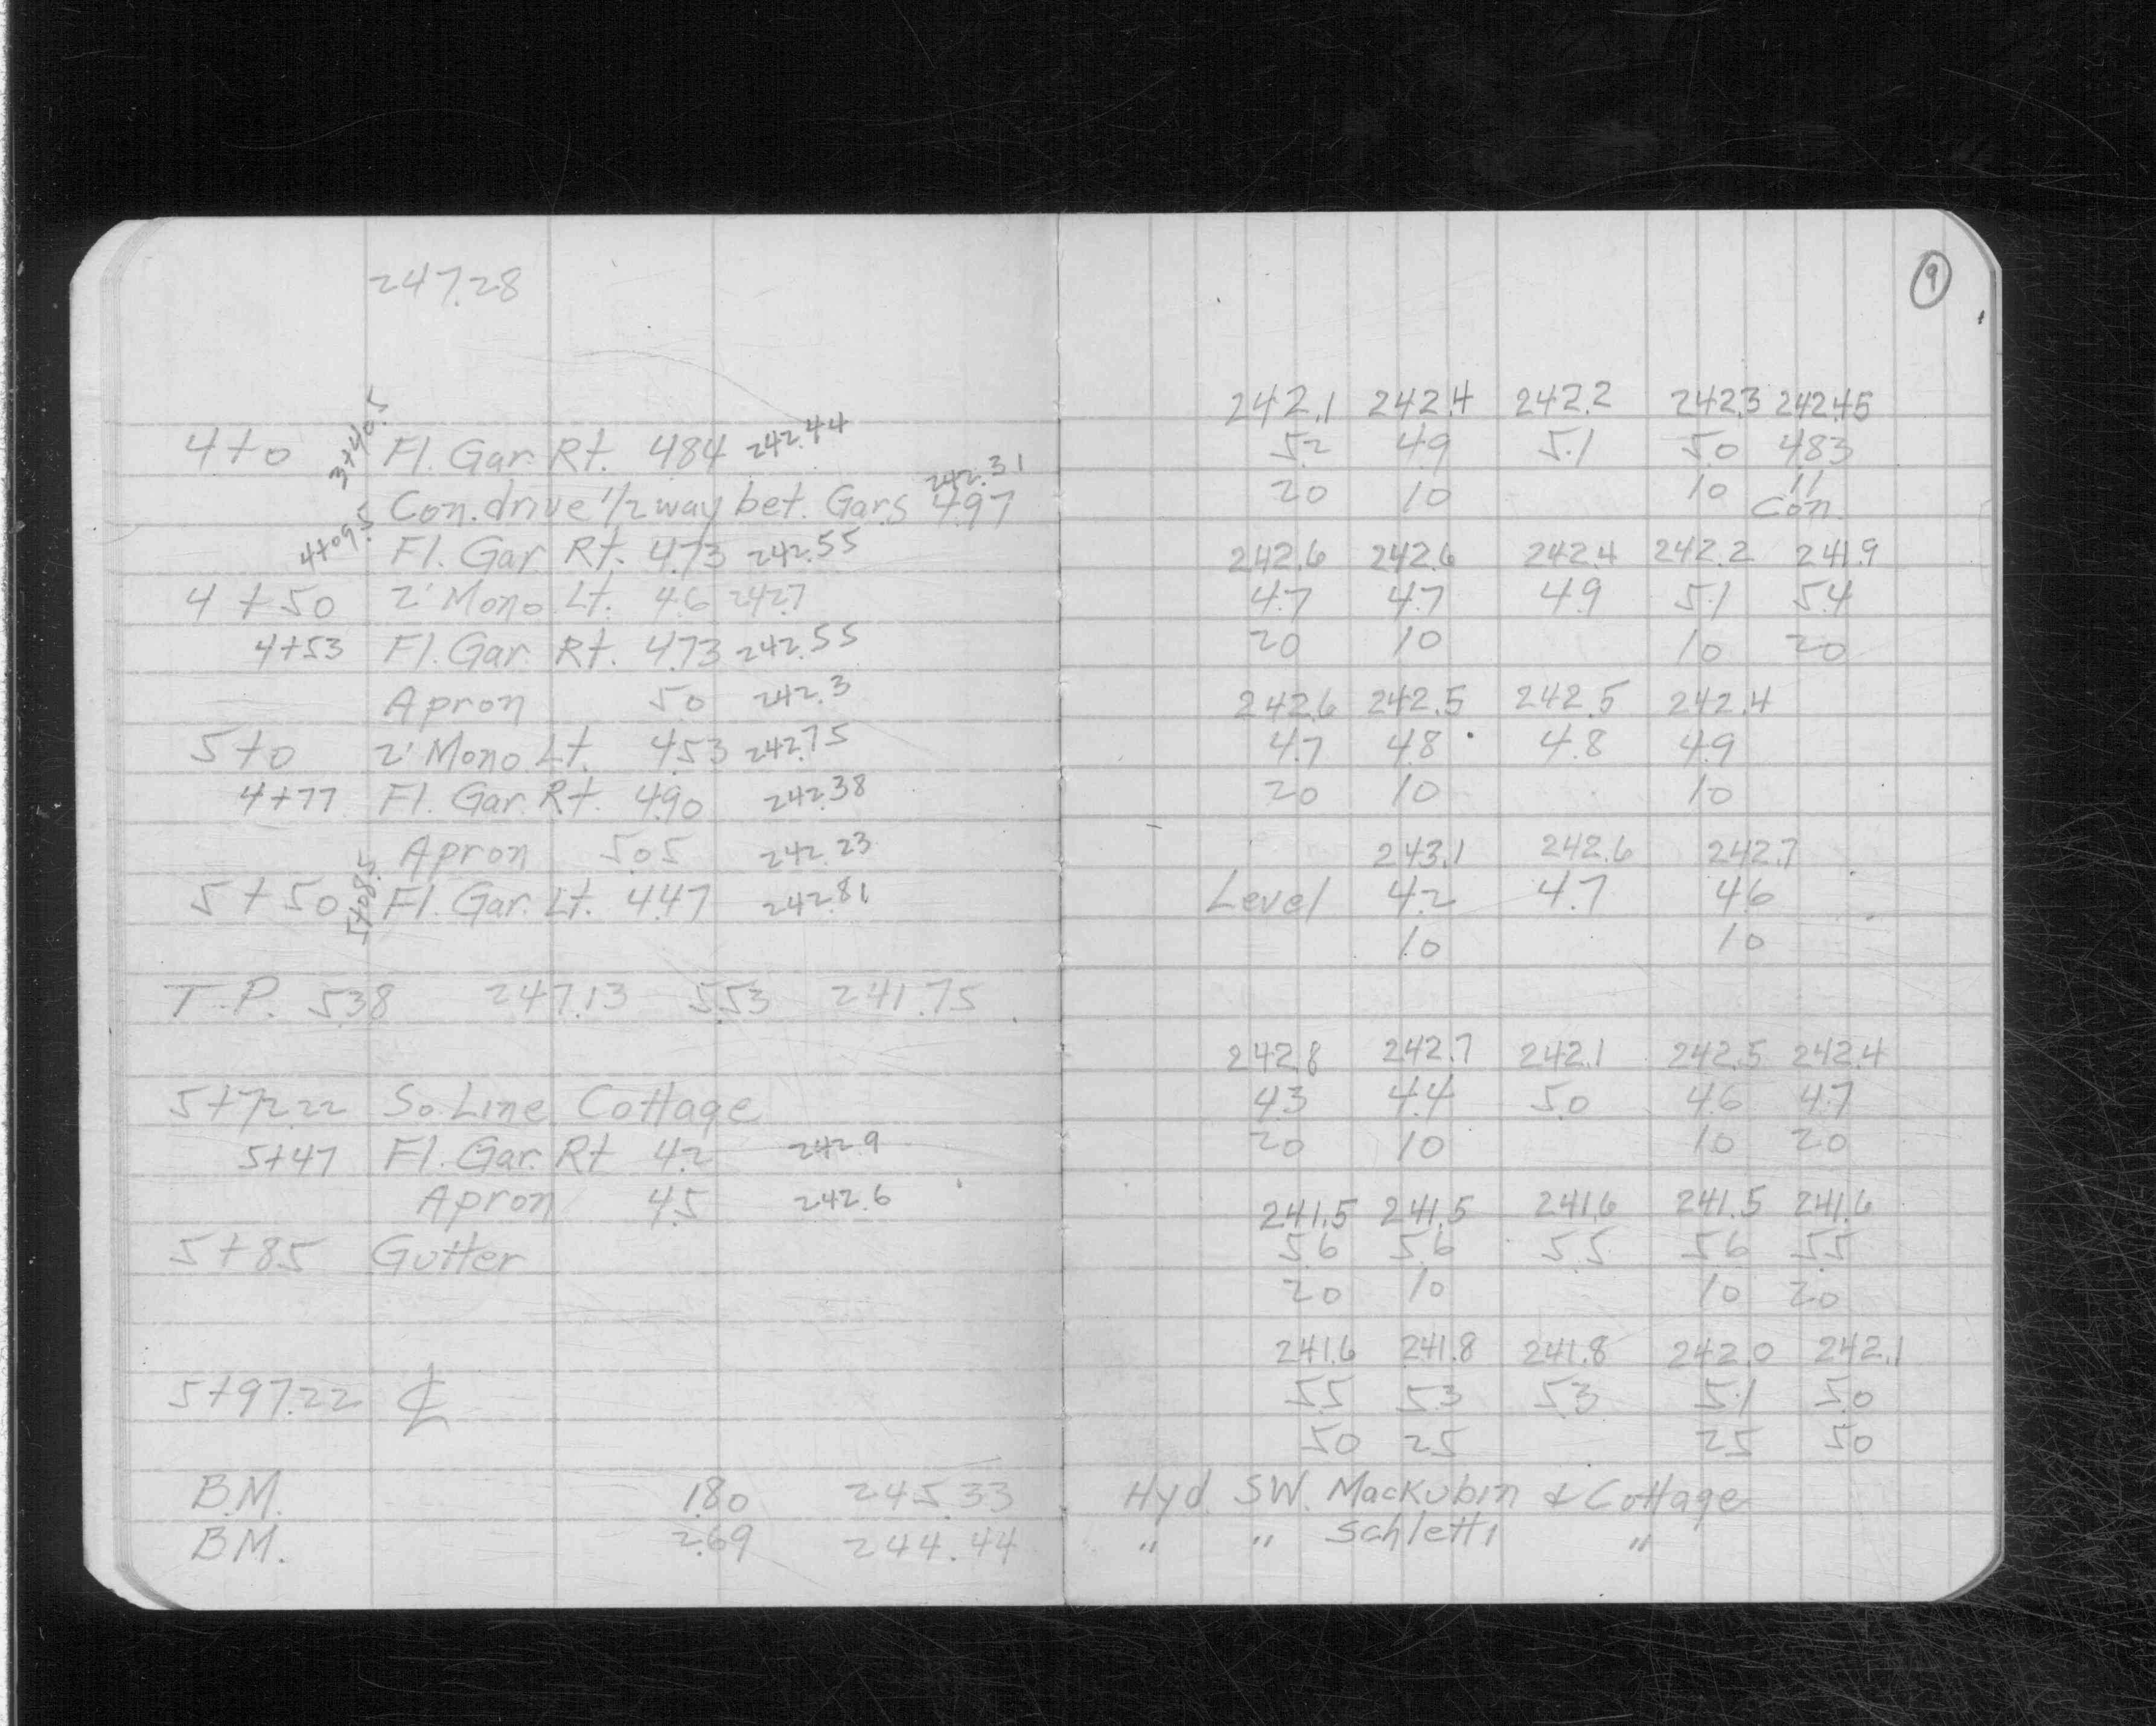 247.28
4+0 3+40.5 Fl. Gar. Rt. 4.84 242.44
Con. drive 1/2 way bet. Gars 4.97 242.31
4+09.5 Fl. Gar. Rt. 4.73 242.55
4+50 2' Mono. Lt. 4.6 242.7
4+53 Fl. Gar. Rt. 4.73 242.55
Apron 5.0 242.3
5+0 2' Mono. Lt. 4.53 242.75
4+77 Fl. Gar. Rt. 4.90 242.38
Apron 5.05 242.23
5+50 5+08.5 Fl. Gar. Lt. 4.47 242.81
T.P. 5.38 247.13 5.53 241.75
5+72.22 So. Line Cottage
5+47 Fl. Gar. Rt 4.2 242.9
Apron 4.5 242.6
5+85 Gutter
5+97.22 ℄
B.M. 1.80 245.33
B.M. 2.69 244.44
9
242.1 242.4 242.2 242.3 242.45
5.2 4.9 5.1 5.0 4.83
20 10 10 11
Con.
242.6 242.6 242.4 242.2 241.9
4.7 4.7 4.9 5.1 5.4
20 10 10 20
242.6 242.5 242.5 242.4
4.7 4.8 4.8 4.9
20 10 10
243.1 242.6 242.7
Level 4.2 4.7 4.6
10 10
242.8 242.7 242.1 242.5 242.4
4.3 4.4 5.0 4.6 4.7
20 10 10 20
241.5 241.5 241.6 241.5 241.6
5.6 5.6 5.5 5.6 5.5
20 10 10 20
241.6 241.8 241.8 242.0 242.1
5.5 5.3 5.3 5.1 5.0
50 25 25 50
Hyd. SW. Mackubin & Cottage
" " Schletti "